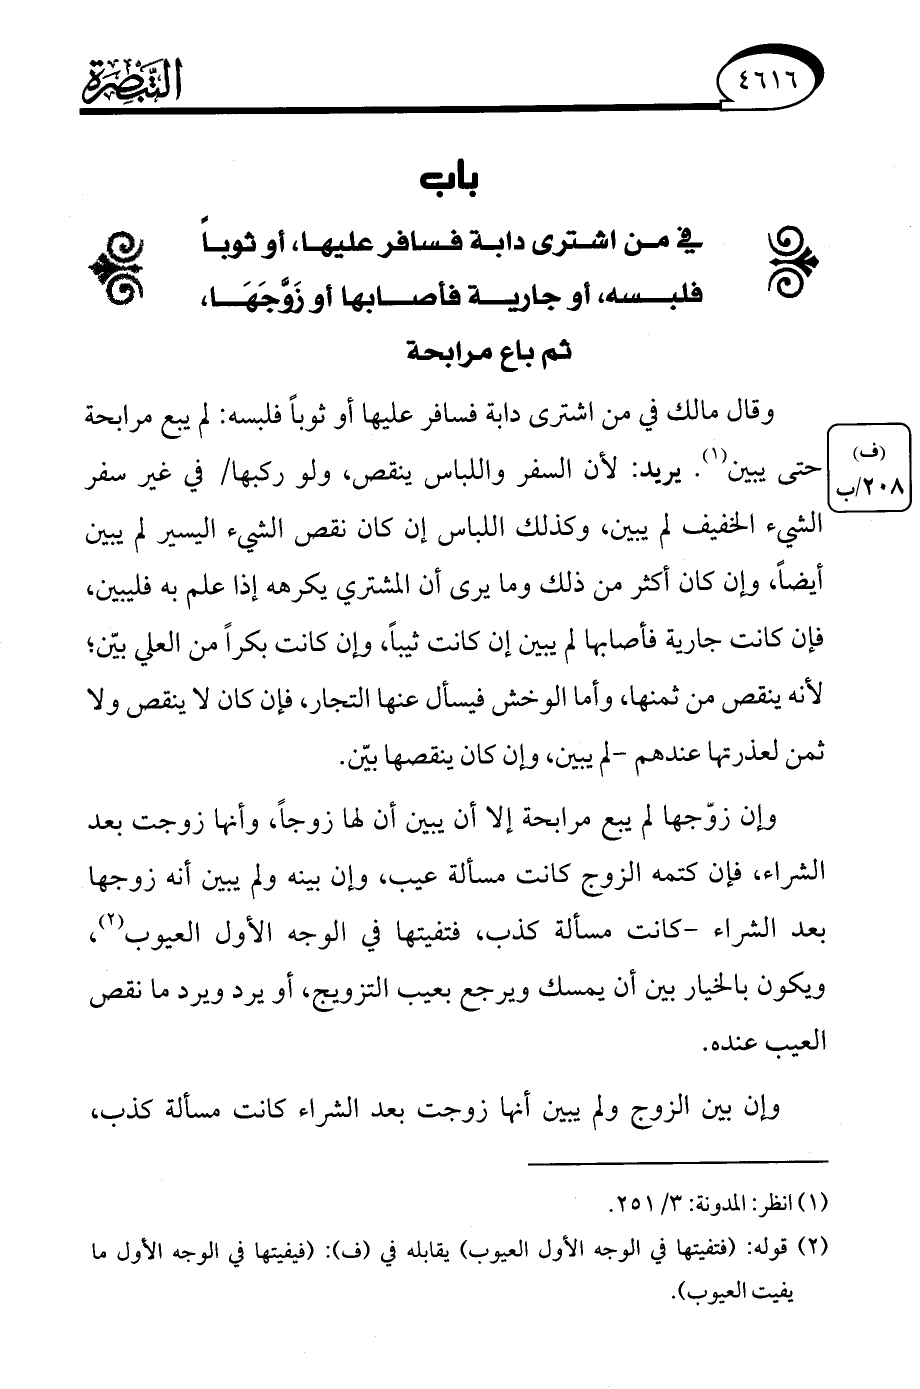 ٤٦١٦
التبصرة
باب
في مـن اشـترى دابـة فـسافر عليهـا، أو ثوبـاً
فلبـسه، أو جاريـة فأصـابها أو زَوَّجَهَـا،
ثم باع مرابحة
وقال مالك في من اشترى دابة فسافر عليها أو ثوباً فلبسه: لم يبع مرابحة
حتى يبين(١). يريد: لأن السفر واللباس ينقص، ولو ركبها/ في غير سفر
(ف)
٢٠٨/ب
الشيء الخفيف لم يبين، وكذلك اللباس إن كان نقص الشيء اليسير لم يبين
أيضاً، وإن كان أكثر من ذلك وما يرى أن المشتري يكرهه إذا علم به فليبين،
فإن كانت جارية فأصابها لم يبين إن كانت ثيباً، وإن كانت بكراً من العلي بيّن؛
لأنه ينقص من ثمنها، وأما الوخش فيسأل عنها التجار، فإن كان لا ينقص ولا
ثمن لعذرتها عندهم -لم يبين، وإن كان ينقصها بيّن.
وإن زوّجها لم يبع مرابحة إلا أن يبين أن لها زوجاً، وأنها زوجت بعد
الشراء، فإن كتمه الزوج كانت مسألة عيب، وإن بينه ولم يبين أنه زوجها
بعد الشراء -كانت مسألة كذب، فتفيتها في الوجه الأول العيوب(٢)،
ويكون بالخيار بين أن يمسك ويرجع بعيب التزويج، أو يرد ويرد ما نقص
العيب عنده.
وإن بين الزوج ولم يبين أنها زوجت بعد الشراء كانت مسألة كذب،
(١) انظر: المدونة: ٣/ ٢٥١.
(٢) قوله: (فتفيتها في الوجه الأول العيوب) يقابله في (ف): (فيفيتها في الوجه الأول ما
يفيت العيوب).